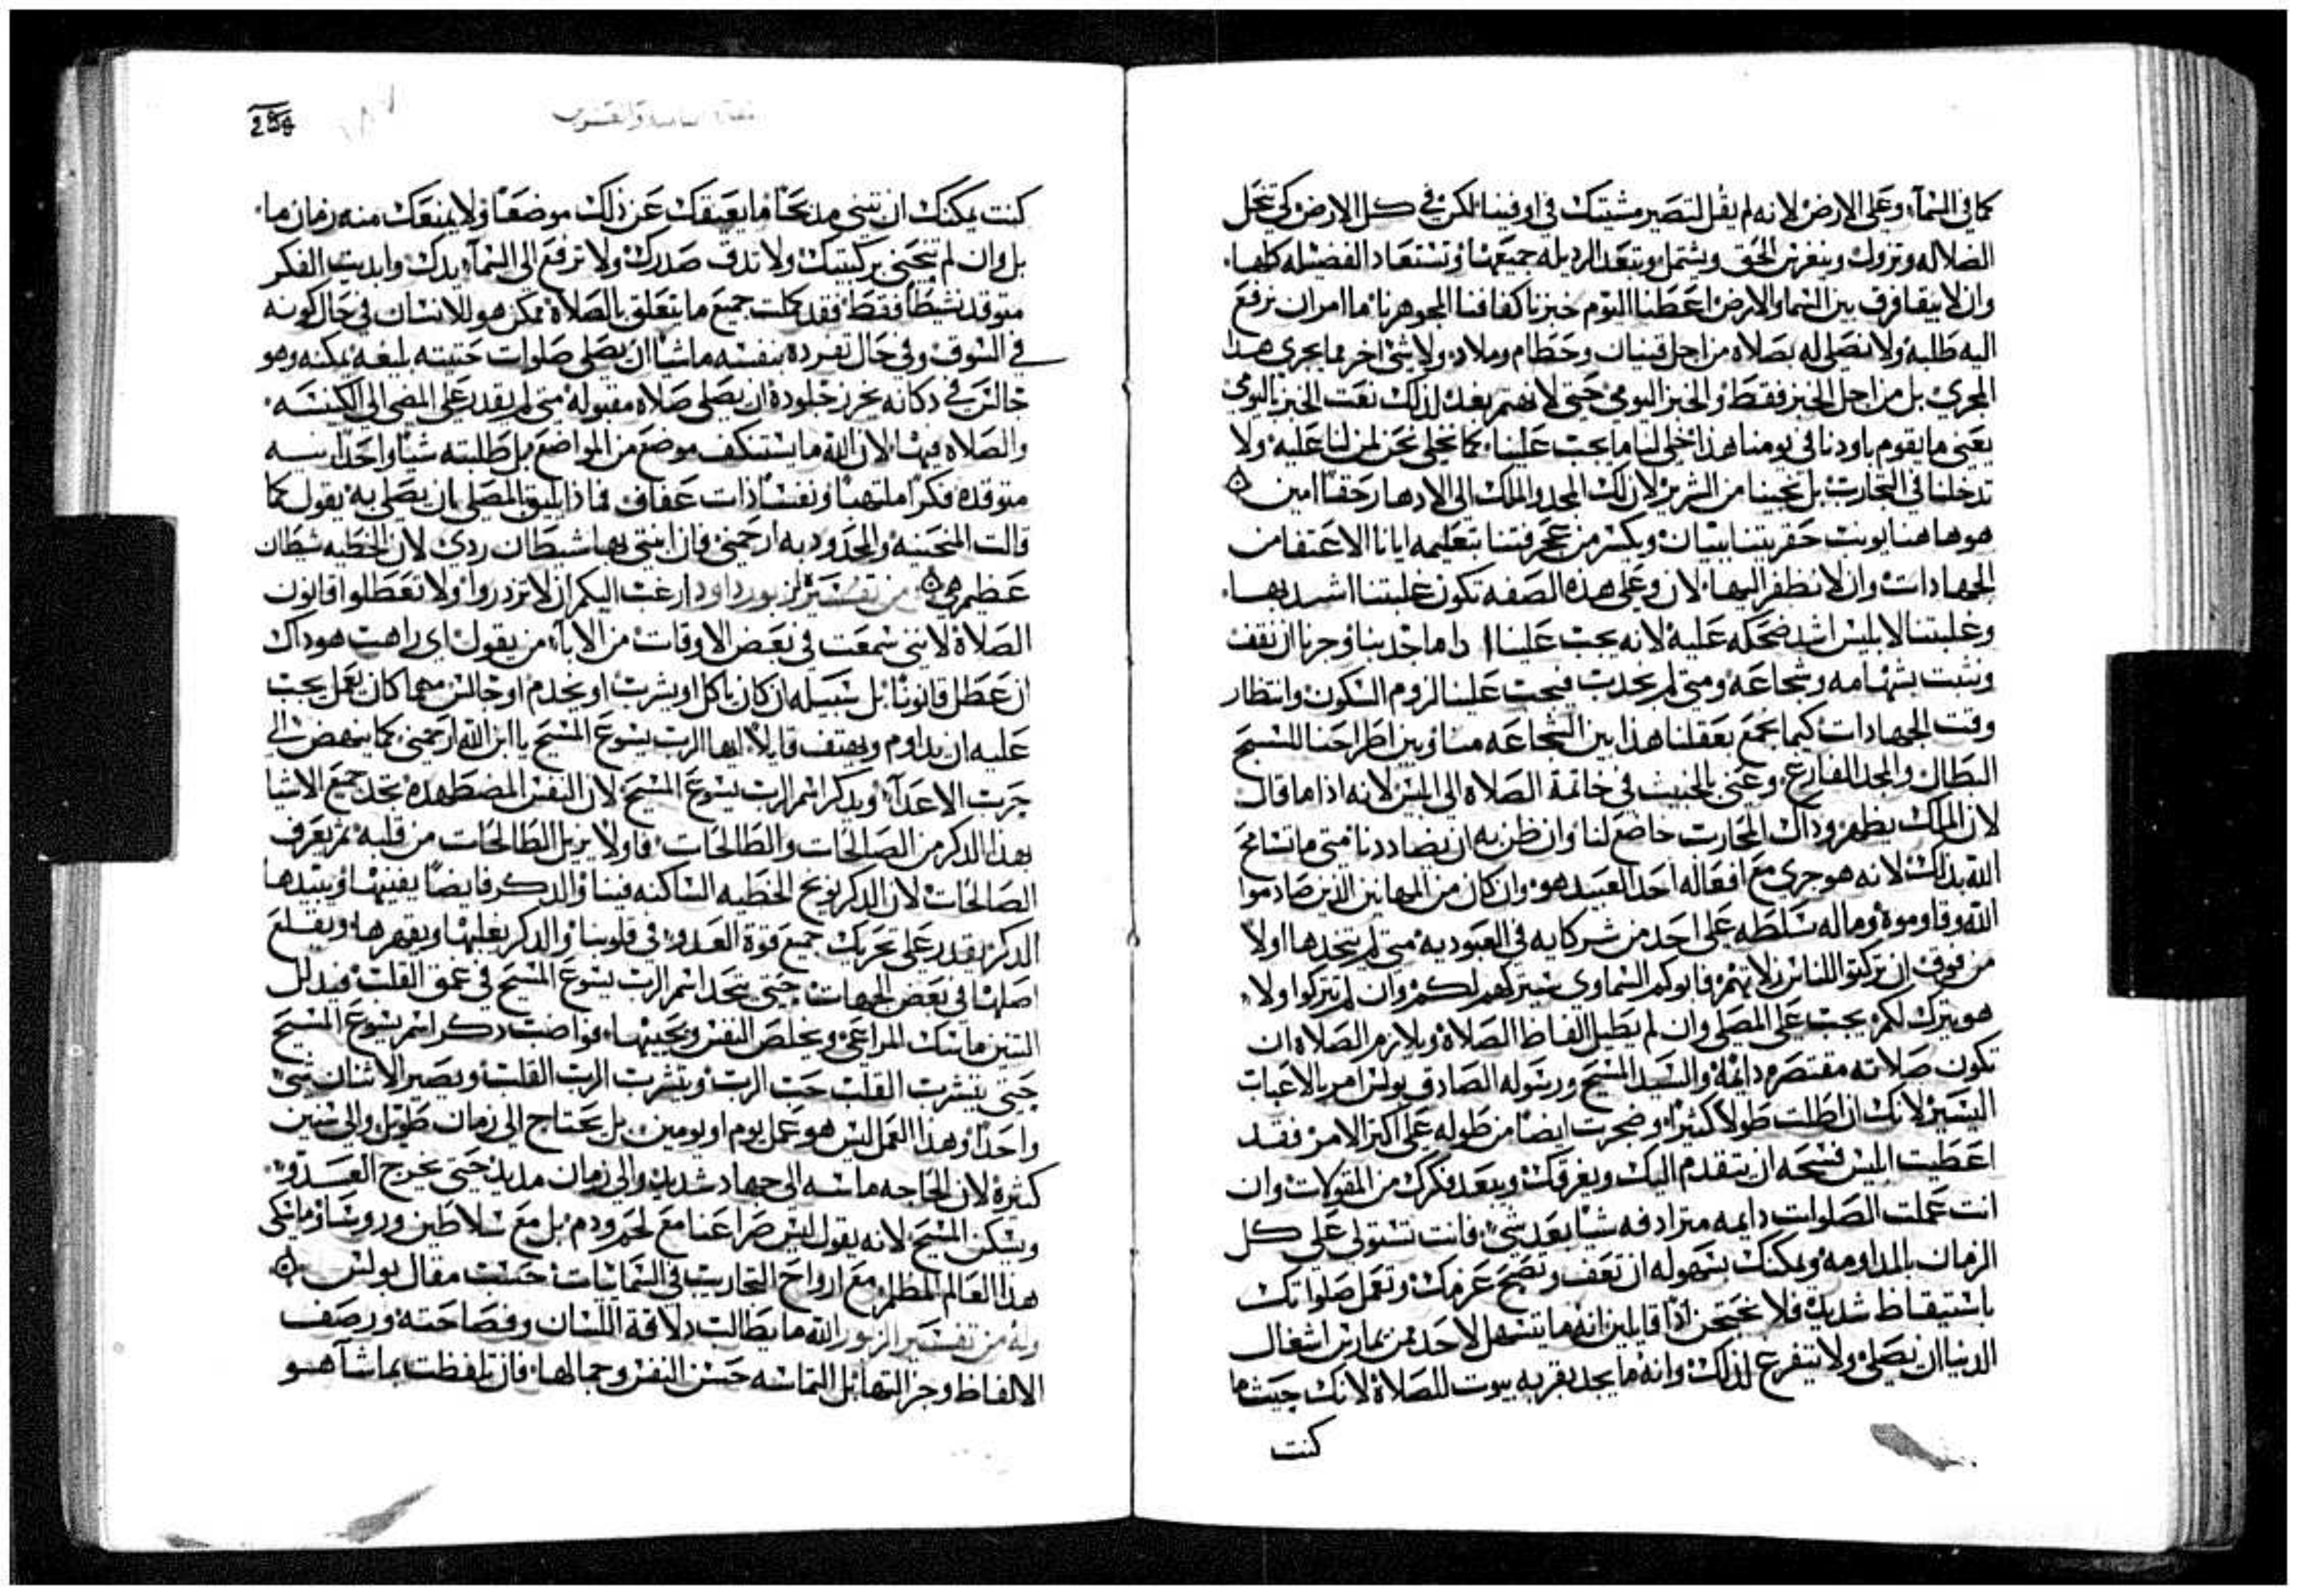 كما في السمآء وعلى الارض لانه لم يقل لتصير مشيتك في او فينا لكن في كل الارض كي تنحل
الضلاله وتزول وينغرس الحق ويشتمل وتبعد الرديله جميعها وتستعاد الفضيله كلها.
وان لا يبقا فرق بين السما والارض اعطنا اليوم خبزنا كفافنا الجوهر نا ما امر ان نرفع
اليه طلبه ولا نصلي له بصلاه من اجل قنيان وحطام وملاد ولا شي اخر مما يجري هدا
المجري بل من اجل الخبز فقط والخبز اليومي حتى لا نهتم بغد لدلك نعت الخبز اليومي
يعني ما يقوم باودنا في يومنا هذا خلي لنا ما يجب علينا. كما نخلي نحن لمن لنا عليه ولا
تدخلنا في التجارب بل نجينا من الشرير لان لك المجد والملك الي الادهار حقا امين
هوها هنا يونب حقريتنا ببيان ويكسر من عجرفتنا بتعليمه ايانا الاعتفا من
الجهادات وان لا نطفر اليها. لان وعلى هذه الصفه تكون غلبتنا اشد بها.
وغلبتنا لابليس اشد ضحكه عليه لانه يجب علينا ادا ما احدبنا وجرنا ان نقف
ونثبت بشهامه وشجاعه ومتى لم نجدب فيجب علينا لزوم السكون وانتظار
وقت الجهادات كيما نجمع بعقلنا هذا بين الشجاعه منا وبين اطراحنا للسبح
البطال والمجد الفارغ وعني بالخبيث في خاتمة الصلاه الي ابليس لانه اذا ما قال
لان لك الملك يظهر وداك المحارب خاضع لنا وان ظن به ان يضاددنا متى ما تسامح
الله بدلك لانه هو جري مع افعاله احد العبيد هو وان كان من المهانين الذين صادموا
الله وقاوموه وما له سلطه على احد من شركايه في العبوديه متى لم يتخدها اولا
من فوق ان تركتوا للناس زلاتهم فابوكم السماوي سيتركهم لكم وان لم تتركوا ولا
هو يترك لكم يجب على المصلي وان لم يطيل الفاظ الصلاة ويلازم الصلاه ان
تكون صلاته مقتصره دايمة والسيد المسيح ورسوله الصادق بولس امر بالاغباب
اليسير لانك ان اطلت طولا كثيرا وضجرت ايضا من طوله على اكثر الامر فقد
اعطيت ابليس فسحه ان يتقدم اليك ويعرقلك ويبعد فكرك من المقولات وان
انت عملت الصلوات دايمه مترادفه شيا بعد شي فانت تستولي على كل
الزمان بالمداومه ويمكنك بسهوله ان تعف وتضبح عزمك وتعمل صلواتك
باستيقاظ شديد فلا نحتجن اذا قايلين انه ما يتسهل لاحد ممن يمارس اشغال
الدنيا ان يصلي ولا يتفرع لذلك وانه ما يجد بقربه بيوت للصلاة لانك حيث ما
كنت
254
كنت يمكنك ان تبني مدبحا ما يعيقك عن ذلك موضعا ولا يمنعك منه زمان ما.
بل وان لم تنحني بركبتيك ولا تدق صدرك ولا ترفع الي السمآء يدك وابديت الفكر
متوقد نشيطا فقط فقد كملت جميع ما يتعلق بالصلاة ممكن هو للانسان في حال كونه
في السوق وفي حال تفرده بنفسه ماشيا ان يصلي صلوات حتيته بليغه يمكنه وهو
جالس في دكانه يخرز جلوده ان يصلي صلاه مقبوله متى لم يقدر على المضي الي الكنيسه.
والصلاه فيها. لان الله ما يستنكف موضع من المواضع بل طلبته شيا واحدا نيه
متوقده فكرا ملتهبا ونفسا ذات عفاف فماذا يليق المصلي بان يصلي به يقول كما
قالت المنحنيه والمجدود به ارحمني فان ابنتي بها شيطان ردي لان الخطيه شطان
عظيم هي من تفسير لزبور داود ارغب اليكم ان لا تزدروا ولا تعطلوا قانون
الصلاة لانني سمعت في بعض الاوقات من الابآء من يقول اي راهب هوداك
ان عطل قانونا بل سبيله ان كان ياكل او يشرب او يخدم او جالس مهما كان يعمل يجب
عليه ان يداوم ويهتف قايلا ايها الرب يسوع المسيح يا ابن الله ارحمني كما ينهض الي
حرب الاعدآء وبدكر اسم الرب يسوع المسيح لان النفس المضطهده تجد جميع الاشيا
بهذا الدكر من الصالحات والطالحات فاولا يزيل الطالحات من قلبه ثم يعرف
الصالحات لان الدكر يوبخ الخطيه الساكنه فينا والدكر فايضا يفنيها ويبيدها
الدكر يقدر على تحريك جميع قوة العدو في قلوبنا والدكر يغلبها ويقهرها ويقلع
اصلها في بعض الجهات حتى يتحد اسم الرب يسوع المسيح في عمق القلب فيدلل
التنين ماسك المراعي ويخلص النفس ويحييها. فواضب دكر اسم يسوع المسيح
حتى يتشرب القلب حب الرب ويتشرب الرب القلب ويصير الاثنان شي
واحدا وهذا العمل ليس هو عمل يوم او يومين بل يحتاج الي زمان طويل والى سنين
كثيرة لان الحاجه ماسه الي جهاد شديد والي زمان مديد حتى يخرج العدو
ويسكن المسيح لانه يقول ليس صراعنا مع لحم ودم بل مع سلاطين وروسا وماسكي
هدا العالم المظلم مع ارواح التجارب في السمائيات حسب مقال بولس
وله من تفسير الزبور الله ما يطالب دلاقة اللسان وفصاحته ورصف
الالفاظ وجز التهابل التماسه حسن النفس وجمالها. فان تلفظت بما شآ هو